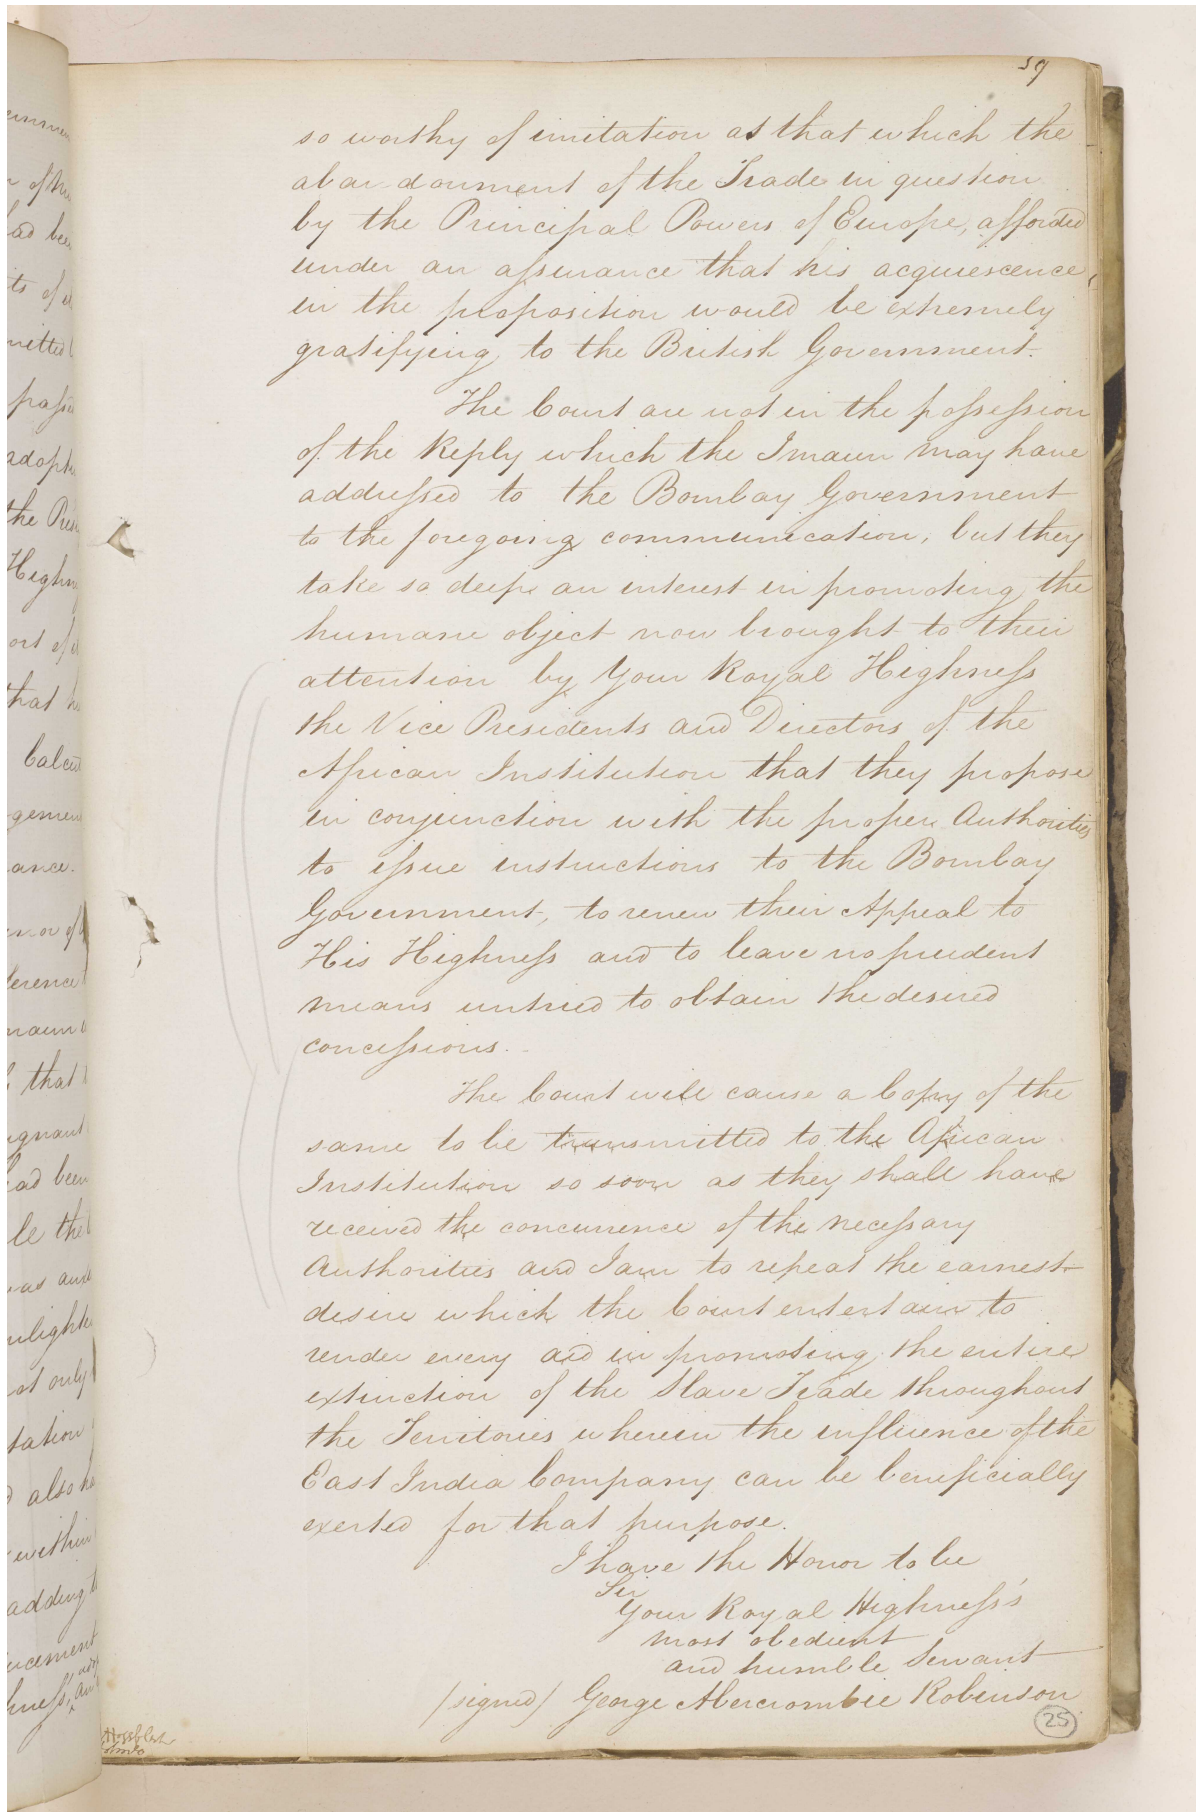 59
so worthy of imitation as that which the
abandonment of the Trade in question
by the Principal Powers of Europe, afforded
under an assurance that his acquiescence,
in the proposition would be extremely
gratifying to the British Government.
The Court are not in the possession
of the Reply which the Imaun may have
addressed to the Bombay Government
to the foregoing communication, but they
take so deep an interest in promoting the
humane object now brought to their
attention by Your Royal Highness
the Vice Presidents and Directors of the
African Institution that they propose
in conjunction with the proper Authorities
to issue instructions to the Bombay
Government, to renew their Appeal to
His Highness and to leave no prudent
means untried to obtain the desired
concessions.
The Court will cause a Copy of the
same to be transmitted to the African
Institution so soon as they shall have
received the concurrence of the necessary
Authorities and I am to repeat the earnest
desire which the Court entertain to
render every aid in promoting the entire
extinction of the Slave Trade throughout
the Territories wherein the influence of the
East India Company can be beneficially
exerted for that purpose.
I have the Honor to be
Sir
Your Royal Highness's
most obedient
and humble Servant
(signed) George Abercrombie Robinson
25